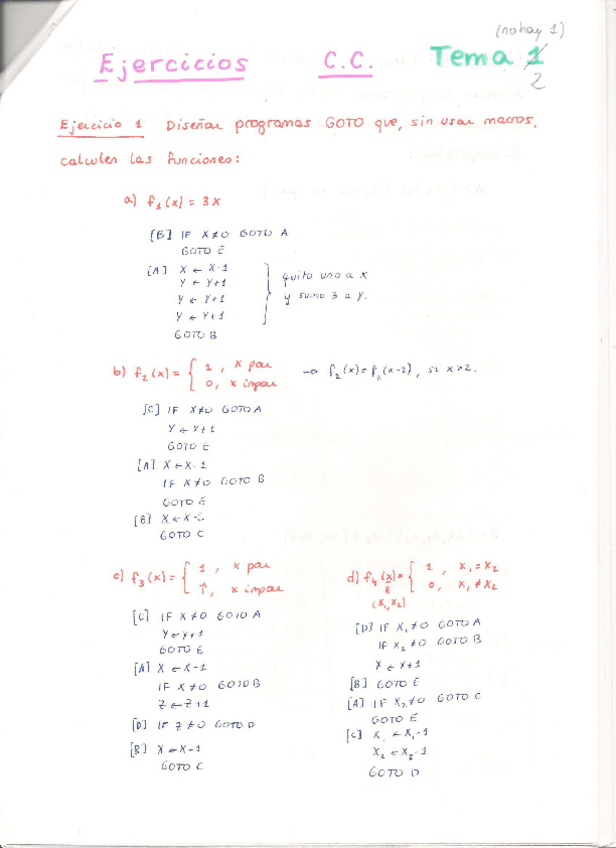 (no hay 1)
Ejercicios C.C. Tema 1
2
Ejercicio 1 Diseñar programas GOTO que, sin usar macros,
calculen las funciones:
a) f₁(x) = 3x
[B] IF X≠0 GOTO A
GOTO E
[A] X ← X-1
Y ← Y+1
Y ← Y+1
Y ← Y+1
GOTO B
quito uno a X
y sumo 3 a Y.
b) f₂(x) = { 1, x par
0, x impar
→ f₂(x)=f₂(x-2), si x>2.
[C] IF X≠0 GOTO A
Y ← Y+1
GOTO E
[A] X ← X-1
IF X≠0 GOTO B
GOTO E
[B] X ← X-1
GOTO C
c) f₃(x) = { 1, x par
↑, x impar
[C] IF X≠0 GOTO A
Y ← Y+1
GOTO E
[A] X ← X-1
IF X≠0 GOTO B
Z ← Z+1
[D] IF Z≠0 GOTO D
[B] X ← X-1
GOTO C
d) f₄(x) = { 1, x₁=x₂
0, x₁≠x₂
(x₁,x₂)
[D] IF X₁≠0 GOTO A
IF X₂≠0 GOTO B
Y ← Y+1
[B] GOTO E
[A] IF X₂≠0 GOTO C
GOTO E
[C] X₁ ← X₁-1
X₂ ← X₂-1
GOTO D